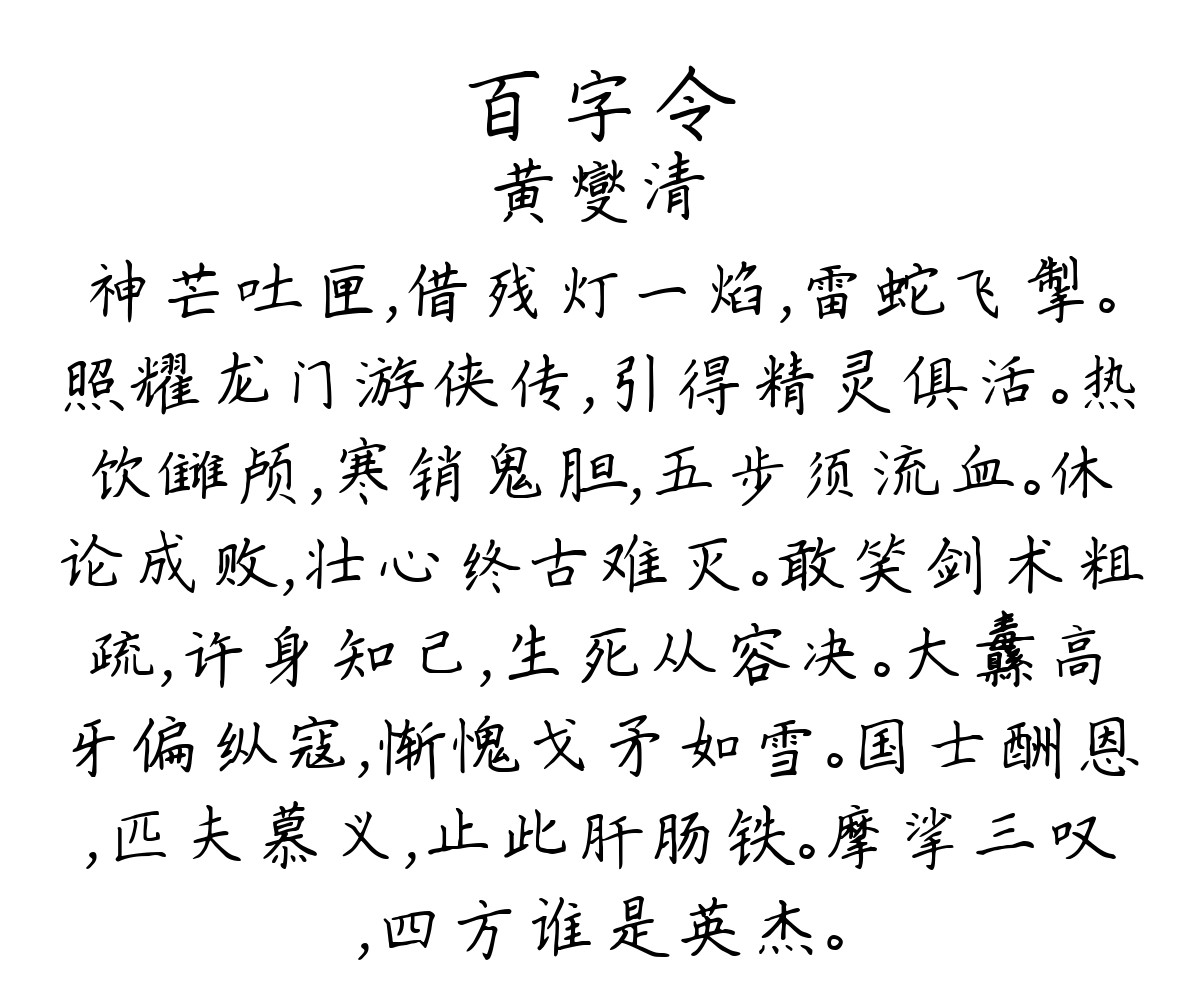 百字令
黄燮清
神芒吐匣,借残灯一焰,雷蛇飞掣。
照耀龙门游侠传,引得精灵俱活。热
饮雠颅,寒销鬼胆,五步须流血。休
论成败,壮心终古难灭。敢笑剑术粗
疏,许身知己,生死从容决。大纛高
牙偏纵寇,惭愧戈矛如雪。国士酬恩
,匹夫慕义,止此肝肠铁。摩挲三叹
,四方谁是英杰。